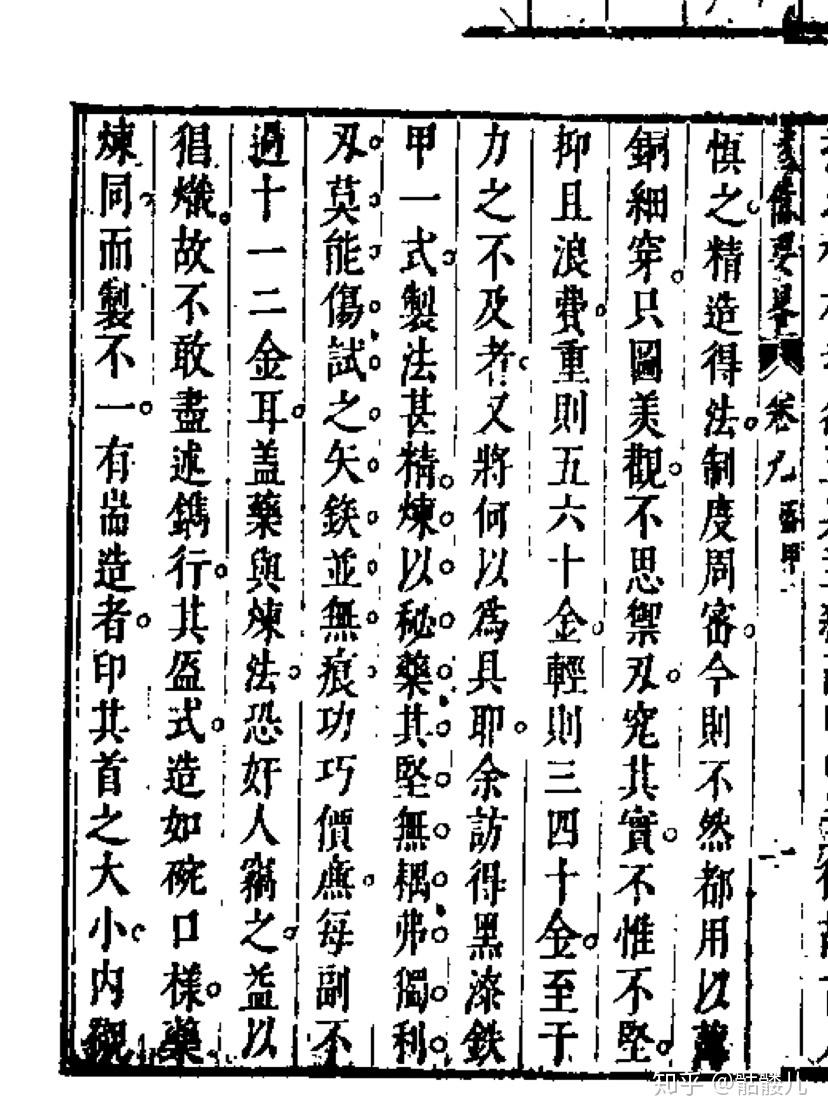 武備要畧 卷九 盔甲 一
慎之精造得法制度周密今則不然都用以薄
銅細穿只圖美觀不思禦刃究其實不惟不堅
抑且浪費重則五六十金輕則三四十金至于
力之不及者又將何以爲具耶余訪得黑漆鉄
甲一式製法甚精煉以秘藥其堅無耦弗獨利
刃莫能傷試之矢銃並無痕功巧價廉每副不
過十一二金耳盖藥與煉法恐奸人竊之益以
猖熾故不敢盡述鐫行其盔式造如碗口様藥
煉同而製不一有耑造者印其首之大小内襯
知乎 @骷髅儿